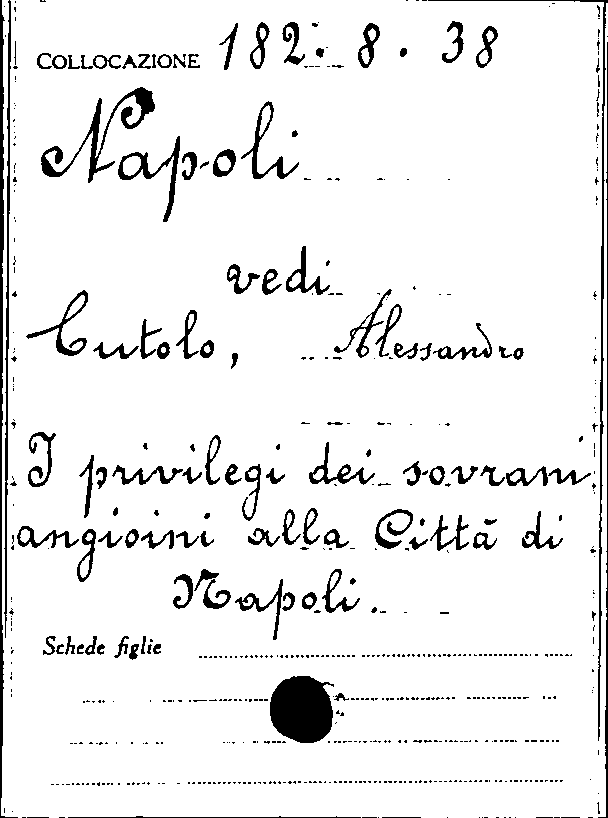 COLLOCAZIONE 182. 8. 38
Napoli
vedi
Cutolo, Alessandro
I privilegi dei sovrani
angioini alla Città di
Napoli.
Schede figlie